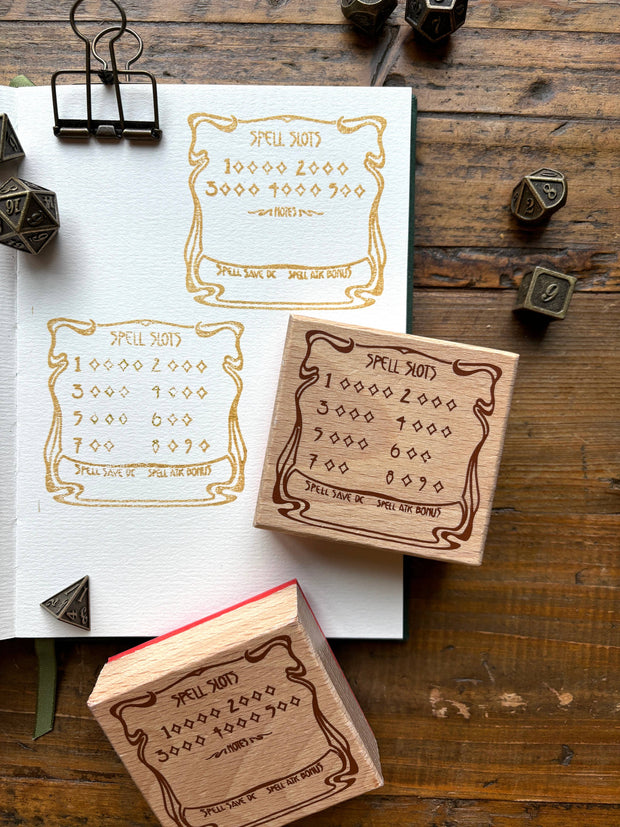 SPELL SLOTS
1◇◇◇◇ 2◇◇◇
3◇◇◇ 4◇◇◇ 5◇◇
NOTES
SPELL SAVE DC SPELL ATK BONUS
SPELL SLOTS
1 ◇◇◇◇ 2 ◇◇◇
3 ◇◇◇ 4 ◇◇◇
5 ◇◇◇ 6 ◇◇
7 ◇◇ 8 ◇ 9 ◇
SPELL SAVE DC SPELL ATK BONUS
SPELL SLOTS
1 ◇◇◇◇ 2 ◇◇◇
3 ◇◇◇ 4 ◇◇◇
5 ◇◇◇ 6 ◇◇
7 ◇◇ 8 ◇ 9 ◇
SPELL SAVE DC SPELL ATK BONUS
SPELL SLOTS
1◇◇◇◇ 2◇◇◇
3◇◇◇ 4◇◇◇ 5◇◇
NOTES
SPELL SAVE DC SPELL ATK BONUS
10
2
8
6
4